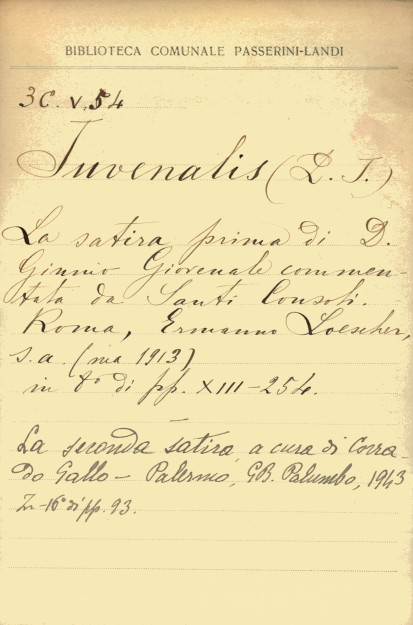 BIBLIOTECA COMUNALE PASSERINI-LANDI
3C.V.54
Iuvenalis (D. I.)
La satira prima di D.
Giunio Giovenale commen-
tata da Santi Consoli.
Roma, Ermanno Loescher,
s.a. (ma 1913)
in 8° di pp. XIII-254.
La seconda satira, a cura di Corra-
do Gallo - Palermo, GB. Palumbo, 1943
In-16° di pp. 93.